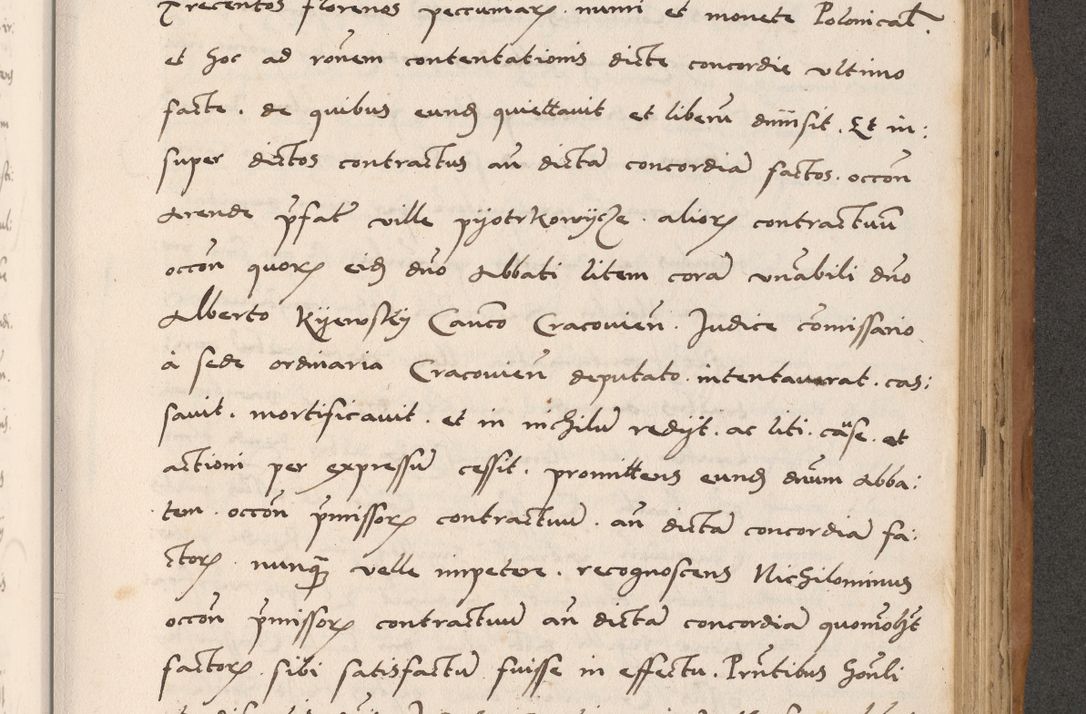 Trecentos florenos peccumarꝝ. numi et monete Polonical̃.
et hoc ad rõnem contentationis dicte concordie ultimo
facte. de quibus eund̃ quiettavit et liberũ dimisit. Et in:
super dictos contractus añ dictã concordiã factos. occõn
Arende p̃fat̃ ville pyotrkowycze. aliorꝝ contractuũ
occõn quorꝝ eid̃ dño Abbati litem corã veñabili dño
Alberto Kyewsky Canco Cracovieñ. Judice comissario
à sede ordinaria Cracovieñ deputato. intentaverat. cas:
savit. mortificavit. et in nichilũ redijt. ac liti. cause. et
actioni per expressũ cessit. promittens eund̃ dnũm Abba:
tem. occõn p̃missorꝝ contractuũ. añ dictã concordiã fa:
ctorꝝ nunqꝫ velle impetere. recognoscens Nichilominus
occõn p̃missorꝝ contractuũ añ dictã concordiã quomolꝫt
factorꝝ. sibi satisfactũ fuisse in effectu. Prñtibus hoñli